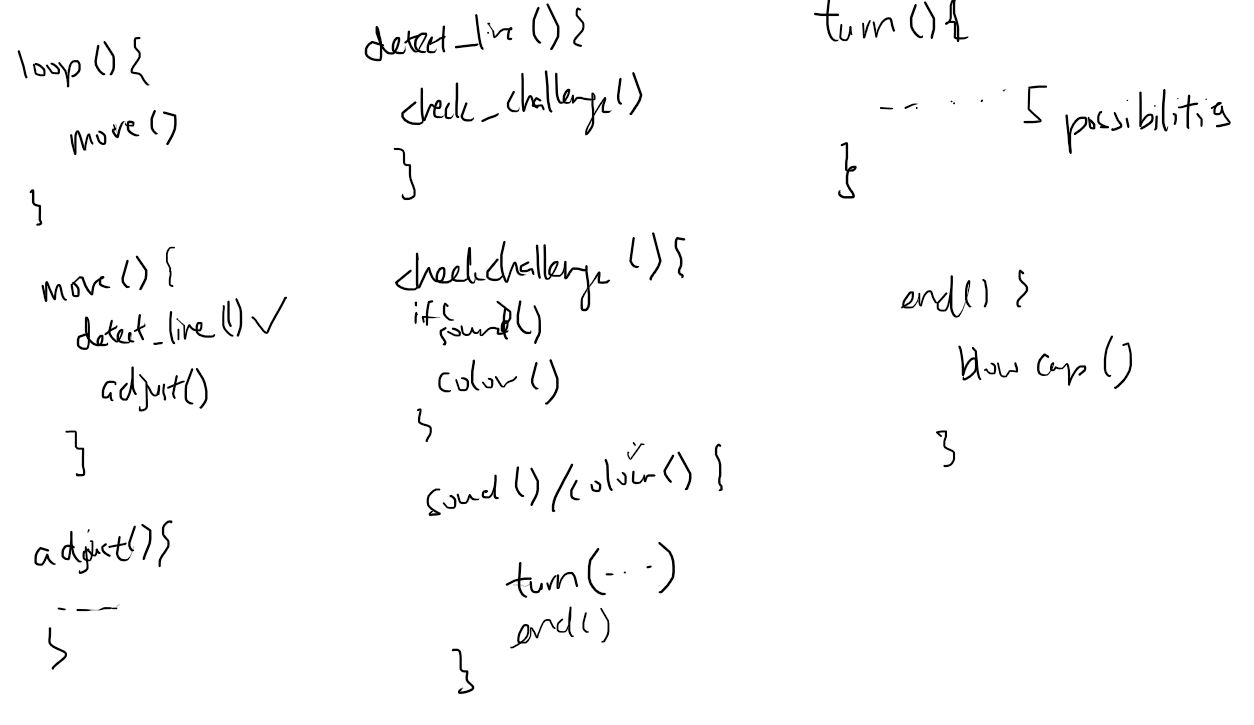 loop () {
move ()
}
move () {
detect_line () ✓
adjust()
}
adjust() {
----
}
detect_line () {
check_challenge()
}
checkchallenge () {
if( sound()
color ()
}
soud () / colour () {
turn (- . . . -)
end ()
}
turn () {
-- . . . . . 5 possibilities
}
end() {
blow cap ()
}